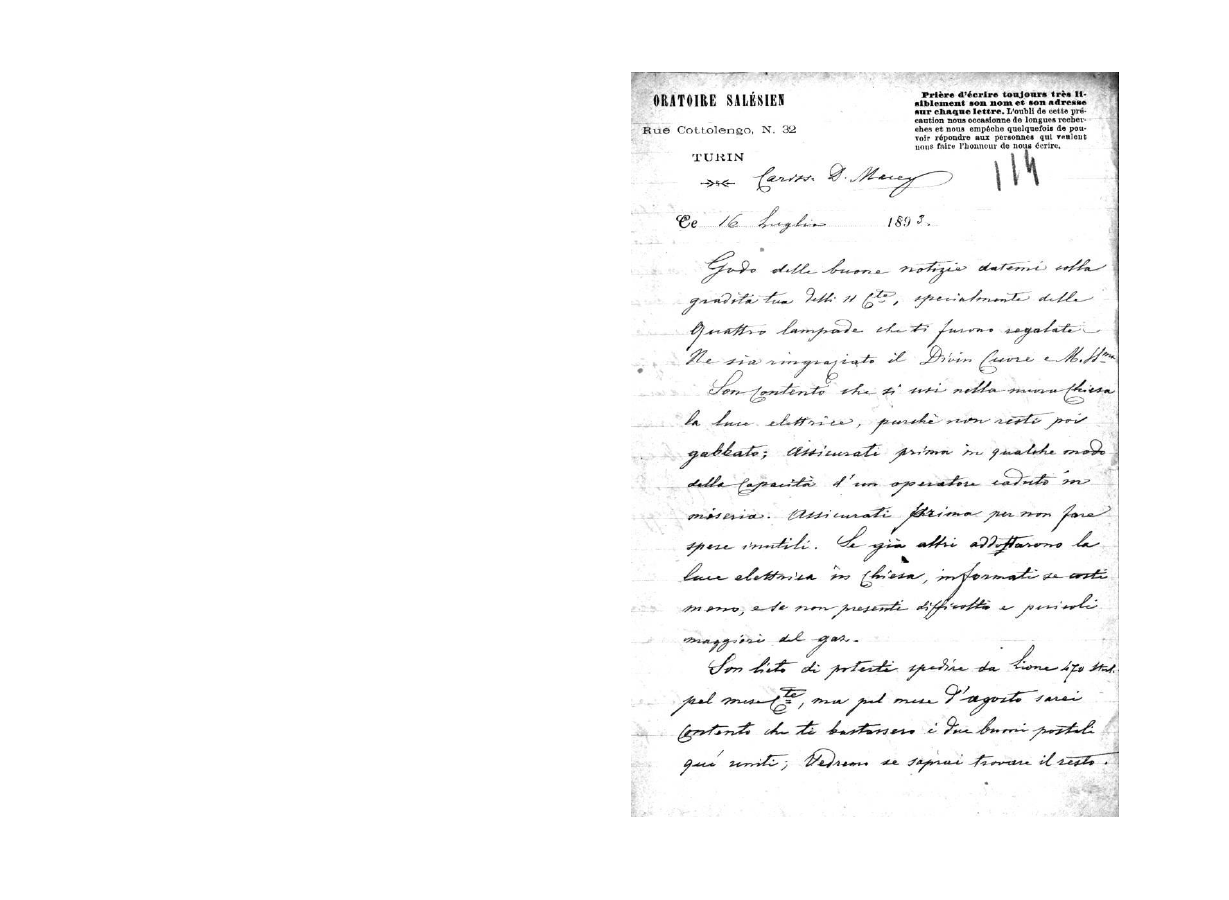 ORATOIRE SALÉSIEN
Rue Cottolengo, N. 32
TURIN
Prière d'écrire toujours très li-
siblement son nom et son adresse
sur chaque lettre. L'oubli de cette pré-
caution nous occasionne de longues recher-
ches et nous empêche quelquefois de pou-
voir répondre aux personnes qui veulent
nous faire l'honneur de nous écrire.
114
Cariss. D. Macey
Ce 16 Luglio 1893.
Godo delle buone notizie datemi colla
gradita tua delli 11 Cte, specialmente delle
quattro lampade che ti furono regalate.
Ne sia ringraziato il Divin Cuore e M. SSma
Son contento che si usi nella nuova Chiesa
la luce elettrica, purchè non resti poi
gabbato; assicurati prima in qualche modo
della Capacità d'un operatore caduto in
miseria. Assicurati prima per non fare
spese inutili. Se già altri addottarono la
luce elettrica in Chiesa, informati se costi
meno, e se non presenti difficoltà e pericoli
maggiori del gas.
Son lieto di poterti spedire da Lione 470 Sterl.
pel mese Cte, ma pel mese d'agosto sarei
Contento che ti bastassero i due buoni postali
qui uniti; Vedremo se saprai trovare il resto.